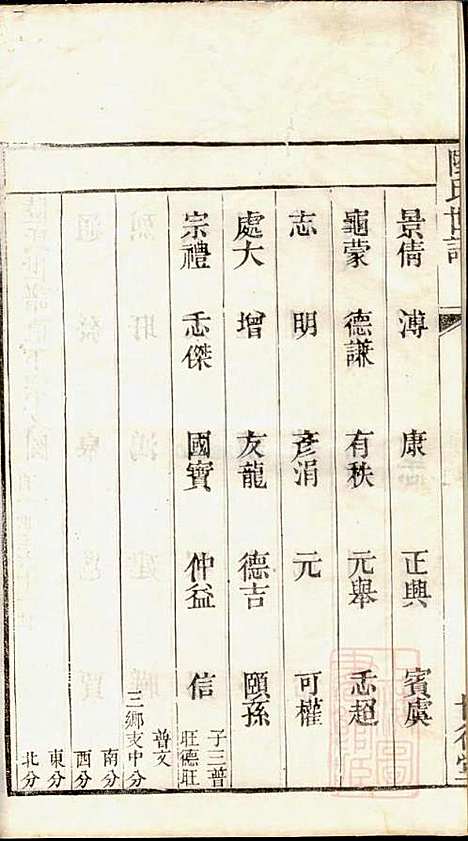 陸氏世譜
景倩 溥 康 正興 賓虞
龜蒙 德謙 有秩 元舉 忎超
志 明 彥涓 元 可權
處大 增 友龍 德吉 頤孫
宗禮 忎傑 國寶 仲益 信
子三普
旺德旺
普文
三鄉支中分
南分
西分
東分
北分